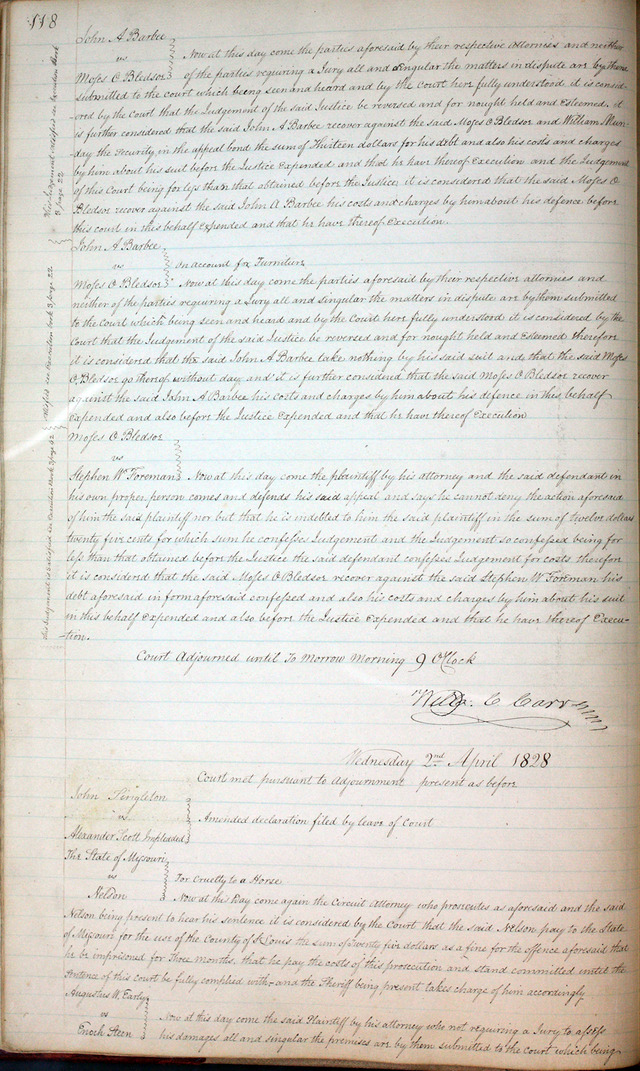 118
John A Barbee
vs
Moses O Bledsoe
Now at this day come the parties aforesaid by their respective attornies and neither
of the parties requiring a Jury all and singular the matters in dispute are by them
submitted to the court which being seen and heard and by the court here fully understood it is consid-
ered by the Court that the Judgement of the said Justice be reversed and for nought held and Esteemed. it
is further considered that the said John A Barbee recover against the said Moses O Bledsoe and William Mun-
day the Security in the appeal bond the sum of Thirteen dollars for his debt and also his costs and charges
by him about his suit before the Justice Expended and that he have thereof Execution and the Judgement
of this Court being for less than that obtained before the Justice it is considered that the said Moses O
Bledsoe recover against the said John A Barbee his costs and charges by him about his defence before
this court in this behalf Expended and that he have thereof Execution.
This Judgement satisfied in Execution Book
3 page 22
John A Barbee
vs
Moses O Bledsoe
on account for Furniture
Now at this day come the parties aforesaid by their respective attornies and
neither of the parties requiring a Jury all and singular the matters in dispute are by them submitted
to the Court which being seen and heard and by the Court here fully understood it is considered by the
Court that the Judgement of the said Justice be reversed and for nought held and Esteemed therefore
it is considered that the said John A Barbee take nothing by his said suit and that the said Moses
O Bledsoe go thereof without day and it is further considered that the said Moses O Bledsoe recover
against the said John A Barbee his costs and charges by him about his defence in this behalf
Expended and also before the Justice Expended and that he have thereof Execution
satisfied in Execution book 3 page 22
Moses O Bledsoe
vs
Stephen W Foreman
Now at this day come the plaintiff by his attorney and the said defendant in
his own proper person comes and defends his said appeal and says he cannot deny the action aforesaid
of him the said plaintiff nor but that he is indebted to him the said plaintiff in the sum of twelve dollars
twenty five cents for which sum he confesses Judgement and the Judgement so confessed being for
less than that obtained before the Justice the said defendant confesses Judgement for costs therefore
it is considered that the said Moses O Bledsoe recover against the said Stephen W Foreman his
debt aforesaid in form aforesaid confessed and also his costs and charges by him about his suit
in this behalf Expended and also before the Justice Expended and that he have thereof Execu-
tion.
this Judgement is satisfied in Execution Book 3 page 62
Court Adjourned until To Morrow Morning 9 OClock
Will. C Carr
Wednesday 2nd April 1828
Court met pursuant to Adjournment present as before
John Singleton
vs
Alexander Scott Impleaded
Amended declaration filed by leave of Court
The State of Missouri
vs
Nelson
For Cruelty to a Horse
Now at this Day come again the Circuit Attorney who prosecutes as aforesaid and the said
Nelson being present to hear his sentence it is considered by the Court that the said Nelson pay to the State
of Missouri for the use of the County of St Louis the sum of Twenty five dollars as a fine for the offence aforesaid that
he be imprisoned for Three months, that he pay the costs of this prosecution and stand committed until the
sentence of this court be fully complied with and the Sheriff being present takes charge of him accordingly
Augustus W. Early
vs
Enoch Steen
Now at this day come the said Plaintiff by his attorney who not requiring a Jury to assess
his damages all and singular the premises are by them submitted to the court which being